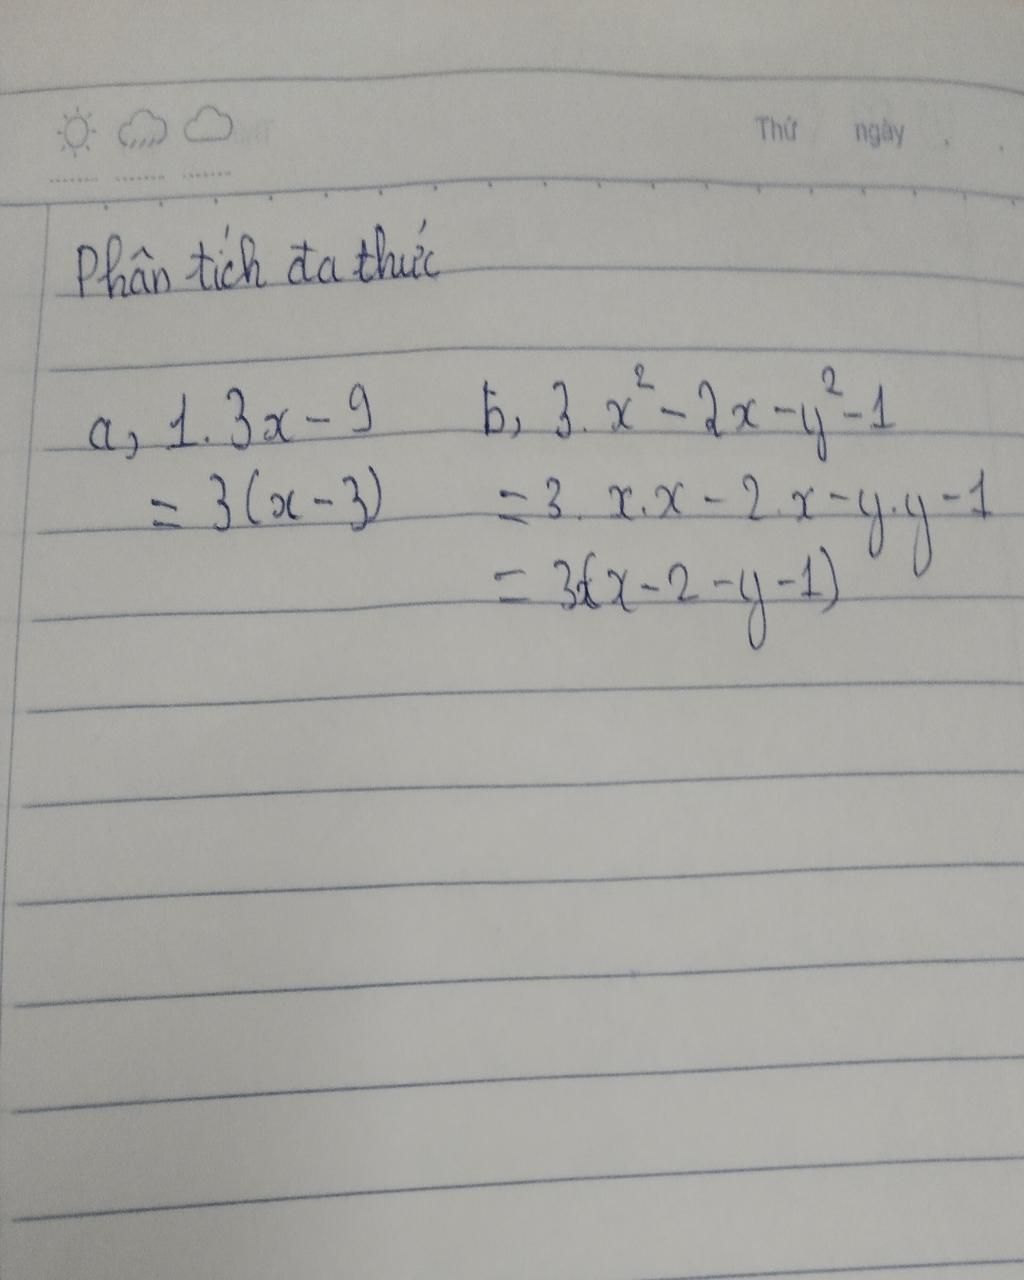 Thứ ngày
Phân tích đa thức
a, 1. 3x - 9
= 3(x - 3)
b, 3. x² - 2x - y² - 1
= 3. x.x - 2.x - y.y - 1
= 3(x - 2 - y - 1)